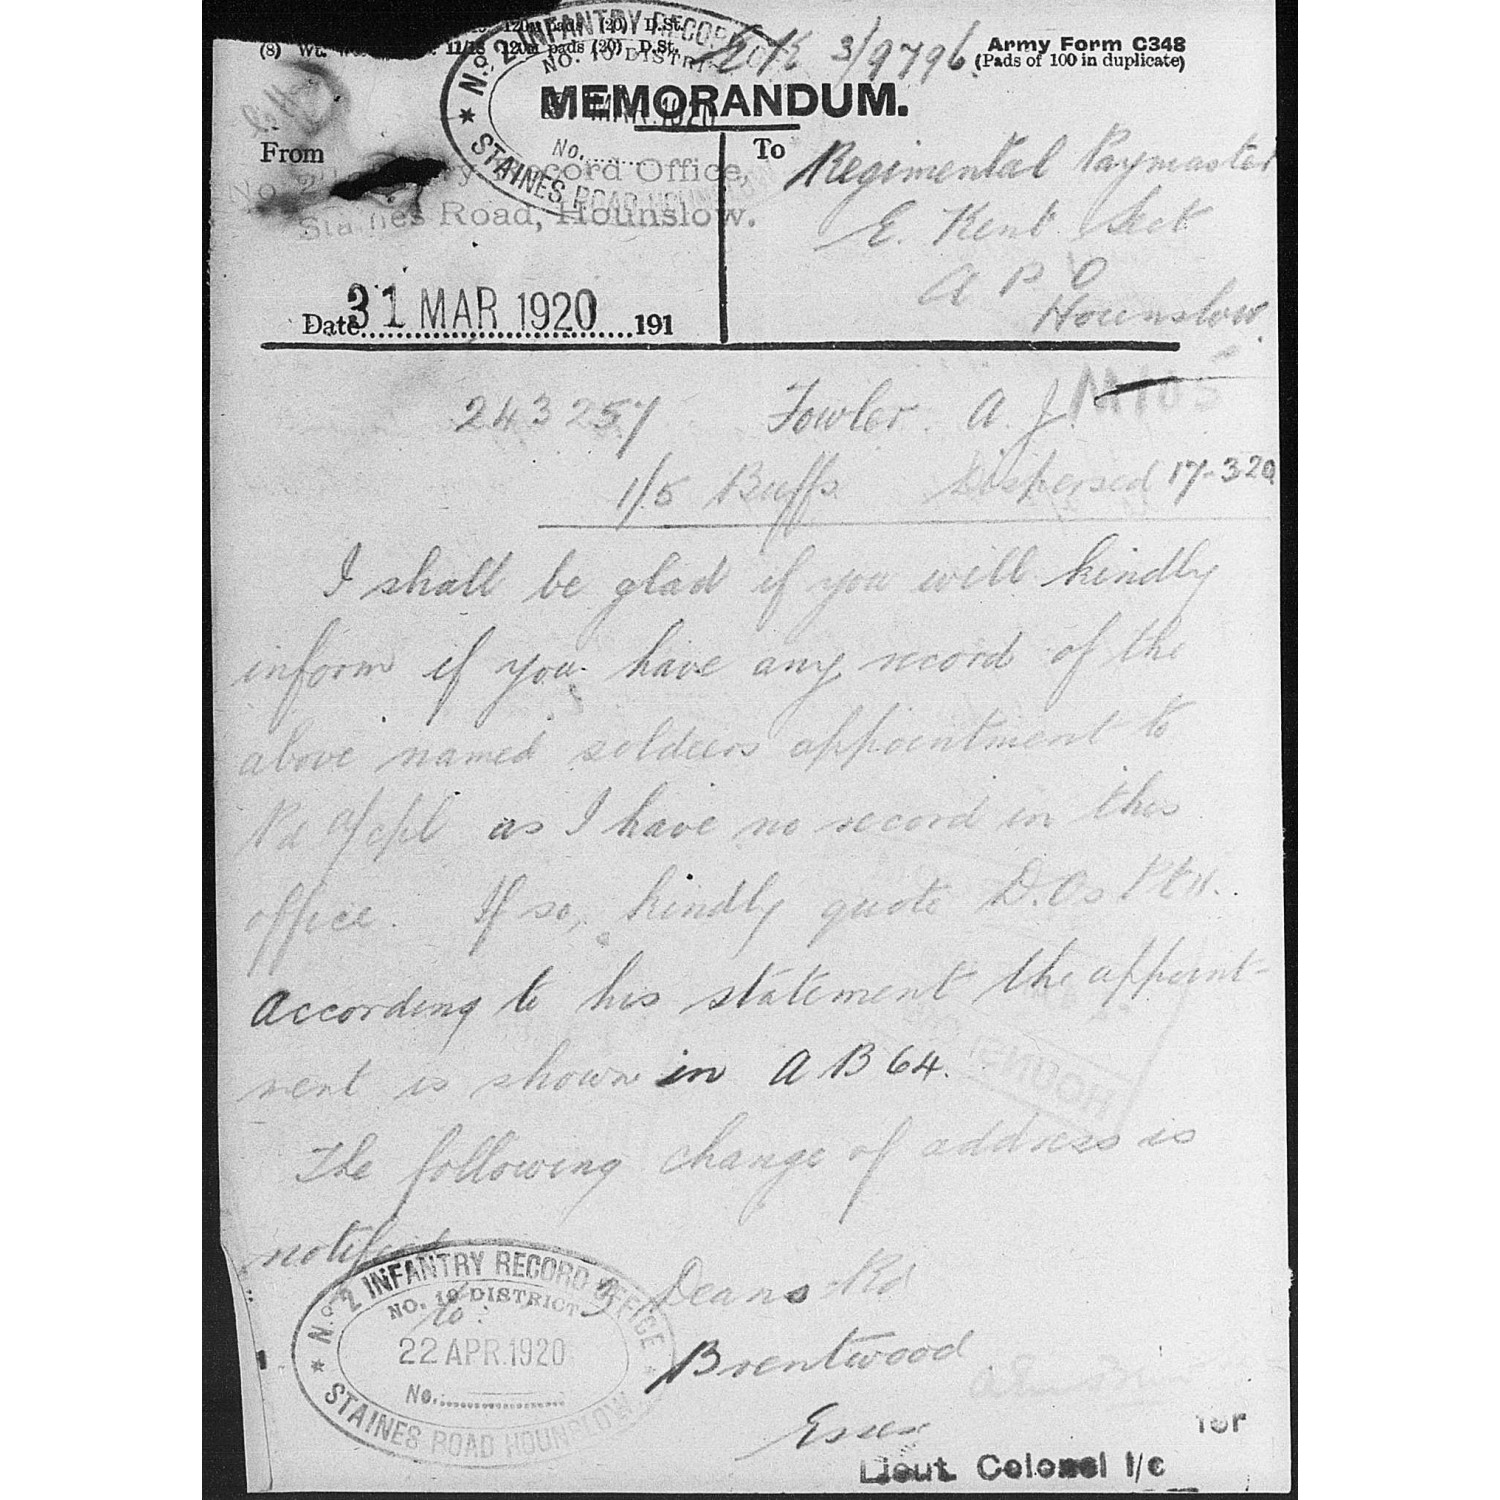 120m pads (20) D.St.
(8) Wt. 11/18 120m pads (20) D.St.
3/9796.
Army Form C348
(Pads of 100 in duplicate)
No. 2 INFANTRY RECORD
NO. 10 DISTRICT
1920
No.
STAINES ROAD HOUNSLOW
MEMORANDUM.
From
Record Office,
Staines Road, Hounslow.
Date 31 MAR 1920 191
To Regimental Paymaster
E. Kent Sect
A P O
Hounslow.
243257 Fowler. A. J.
1/5 Buffs. Dispersed 17-3 20
I shall be glad if you will kindly
inform if you have any record of the
above named soldiers appointment to
Pd a/cpl as I have no record in this
office. If so, kindly quote D.Os Pt II.
According to his statement the appoint-
ment is shown in A B 64.
The following change of address is
notified
to: 3 Deans Rd
Brentwood
Essex
No. 2 INFANTRY RECORD OFFICE
NO. 10 DISTRICT
22 APR. 1920
No.
STAINES ROAD HOUNSLOW
for
Lieut. Colonel I/c